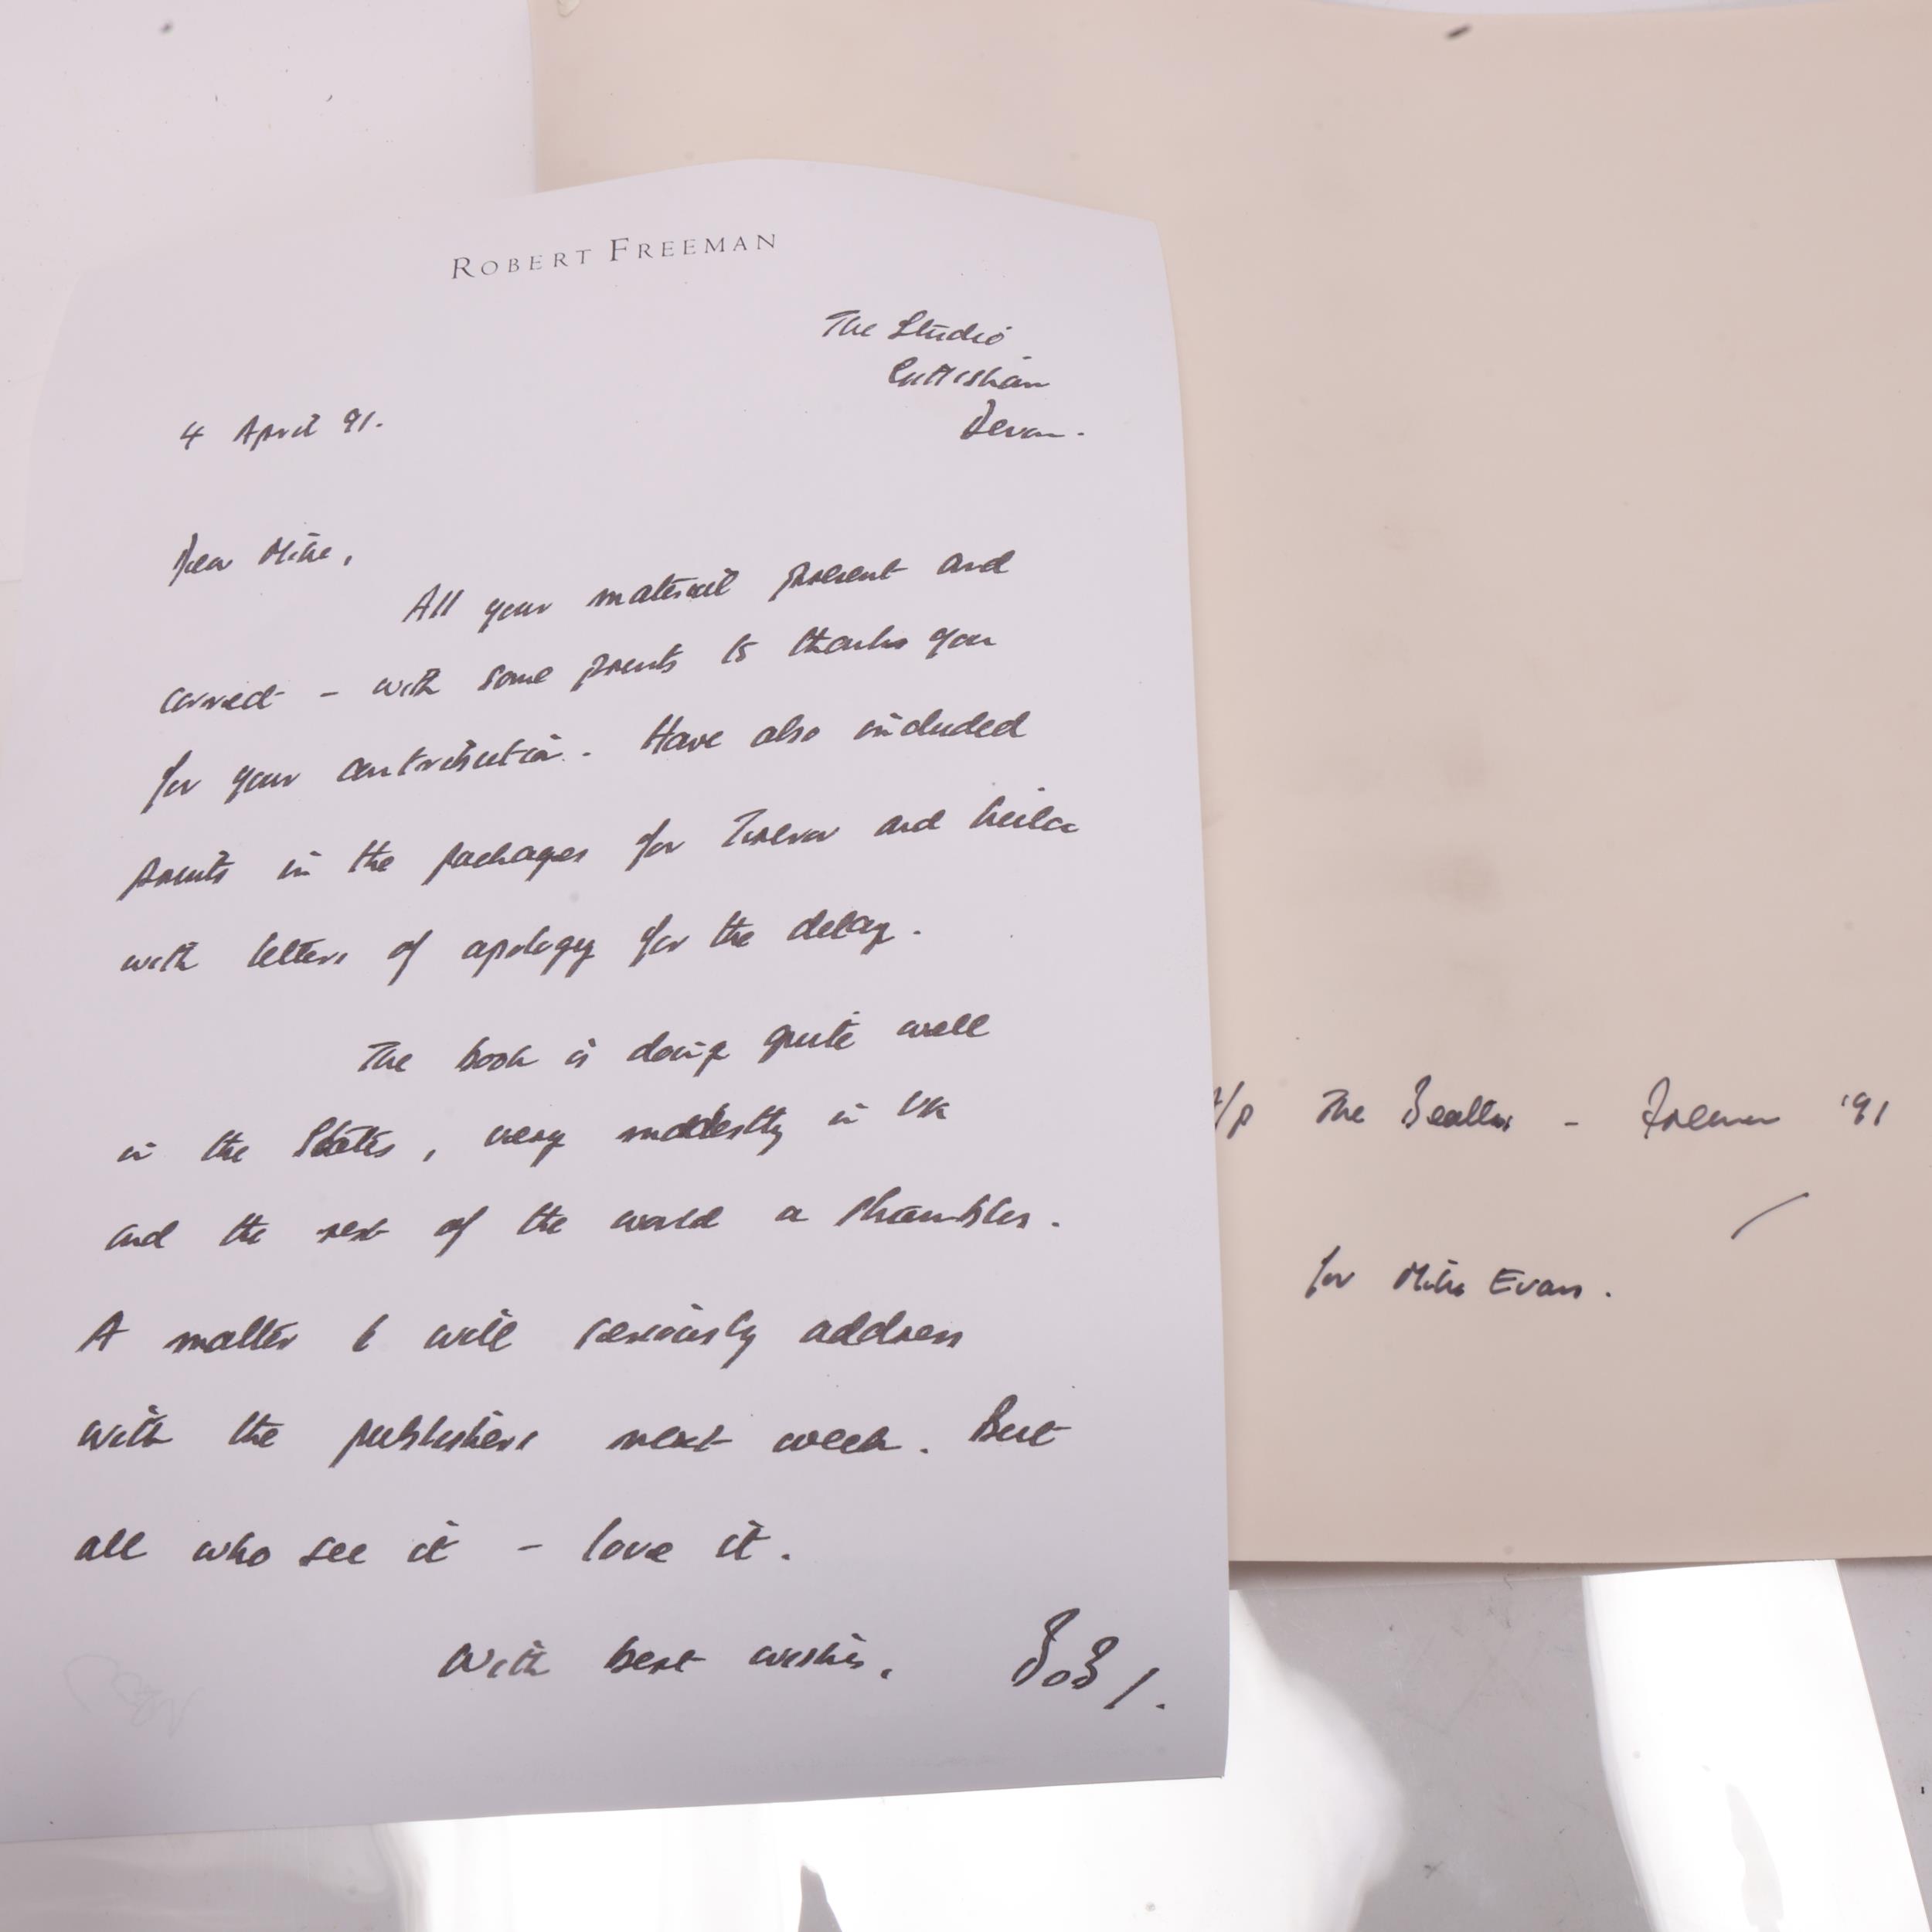 ROBERT FREEMAN
The Studio
Gittisham
Devon.
4 April 91.
Dear Mike,
All your material present and
correct - with some prints to thank you
for your contribution. Have also included
prints in the packages for Trevor and Sheila
with letters of apology for the delay.
The book is doing quite well
in the States, very modestly in UK
and the rest of the world a shambles.
A matter I will seriously address
with the publishers next week. But
all who see it - love it.
With best wishes,
Bob /.
A/p The Beatles - Freeman '91
for Mike Evans.